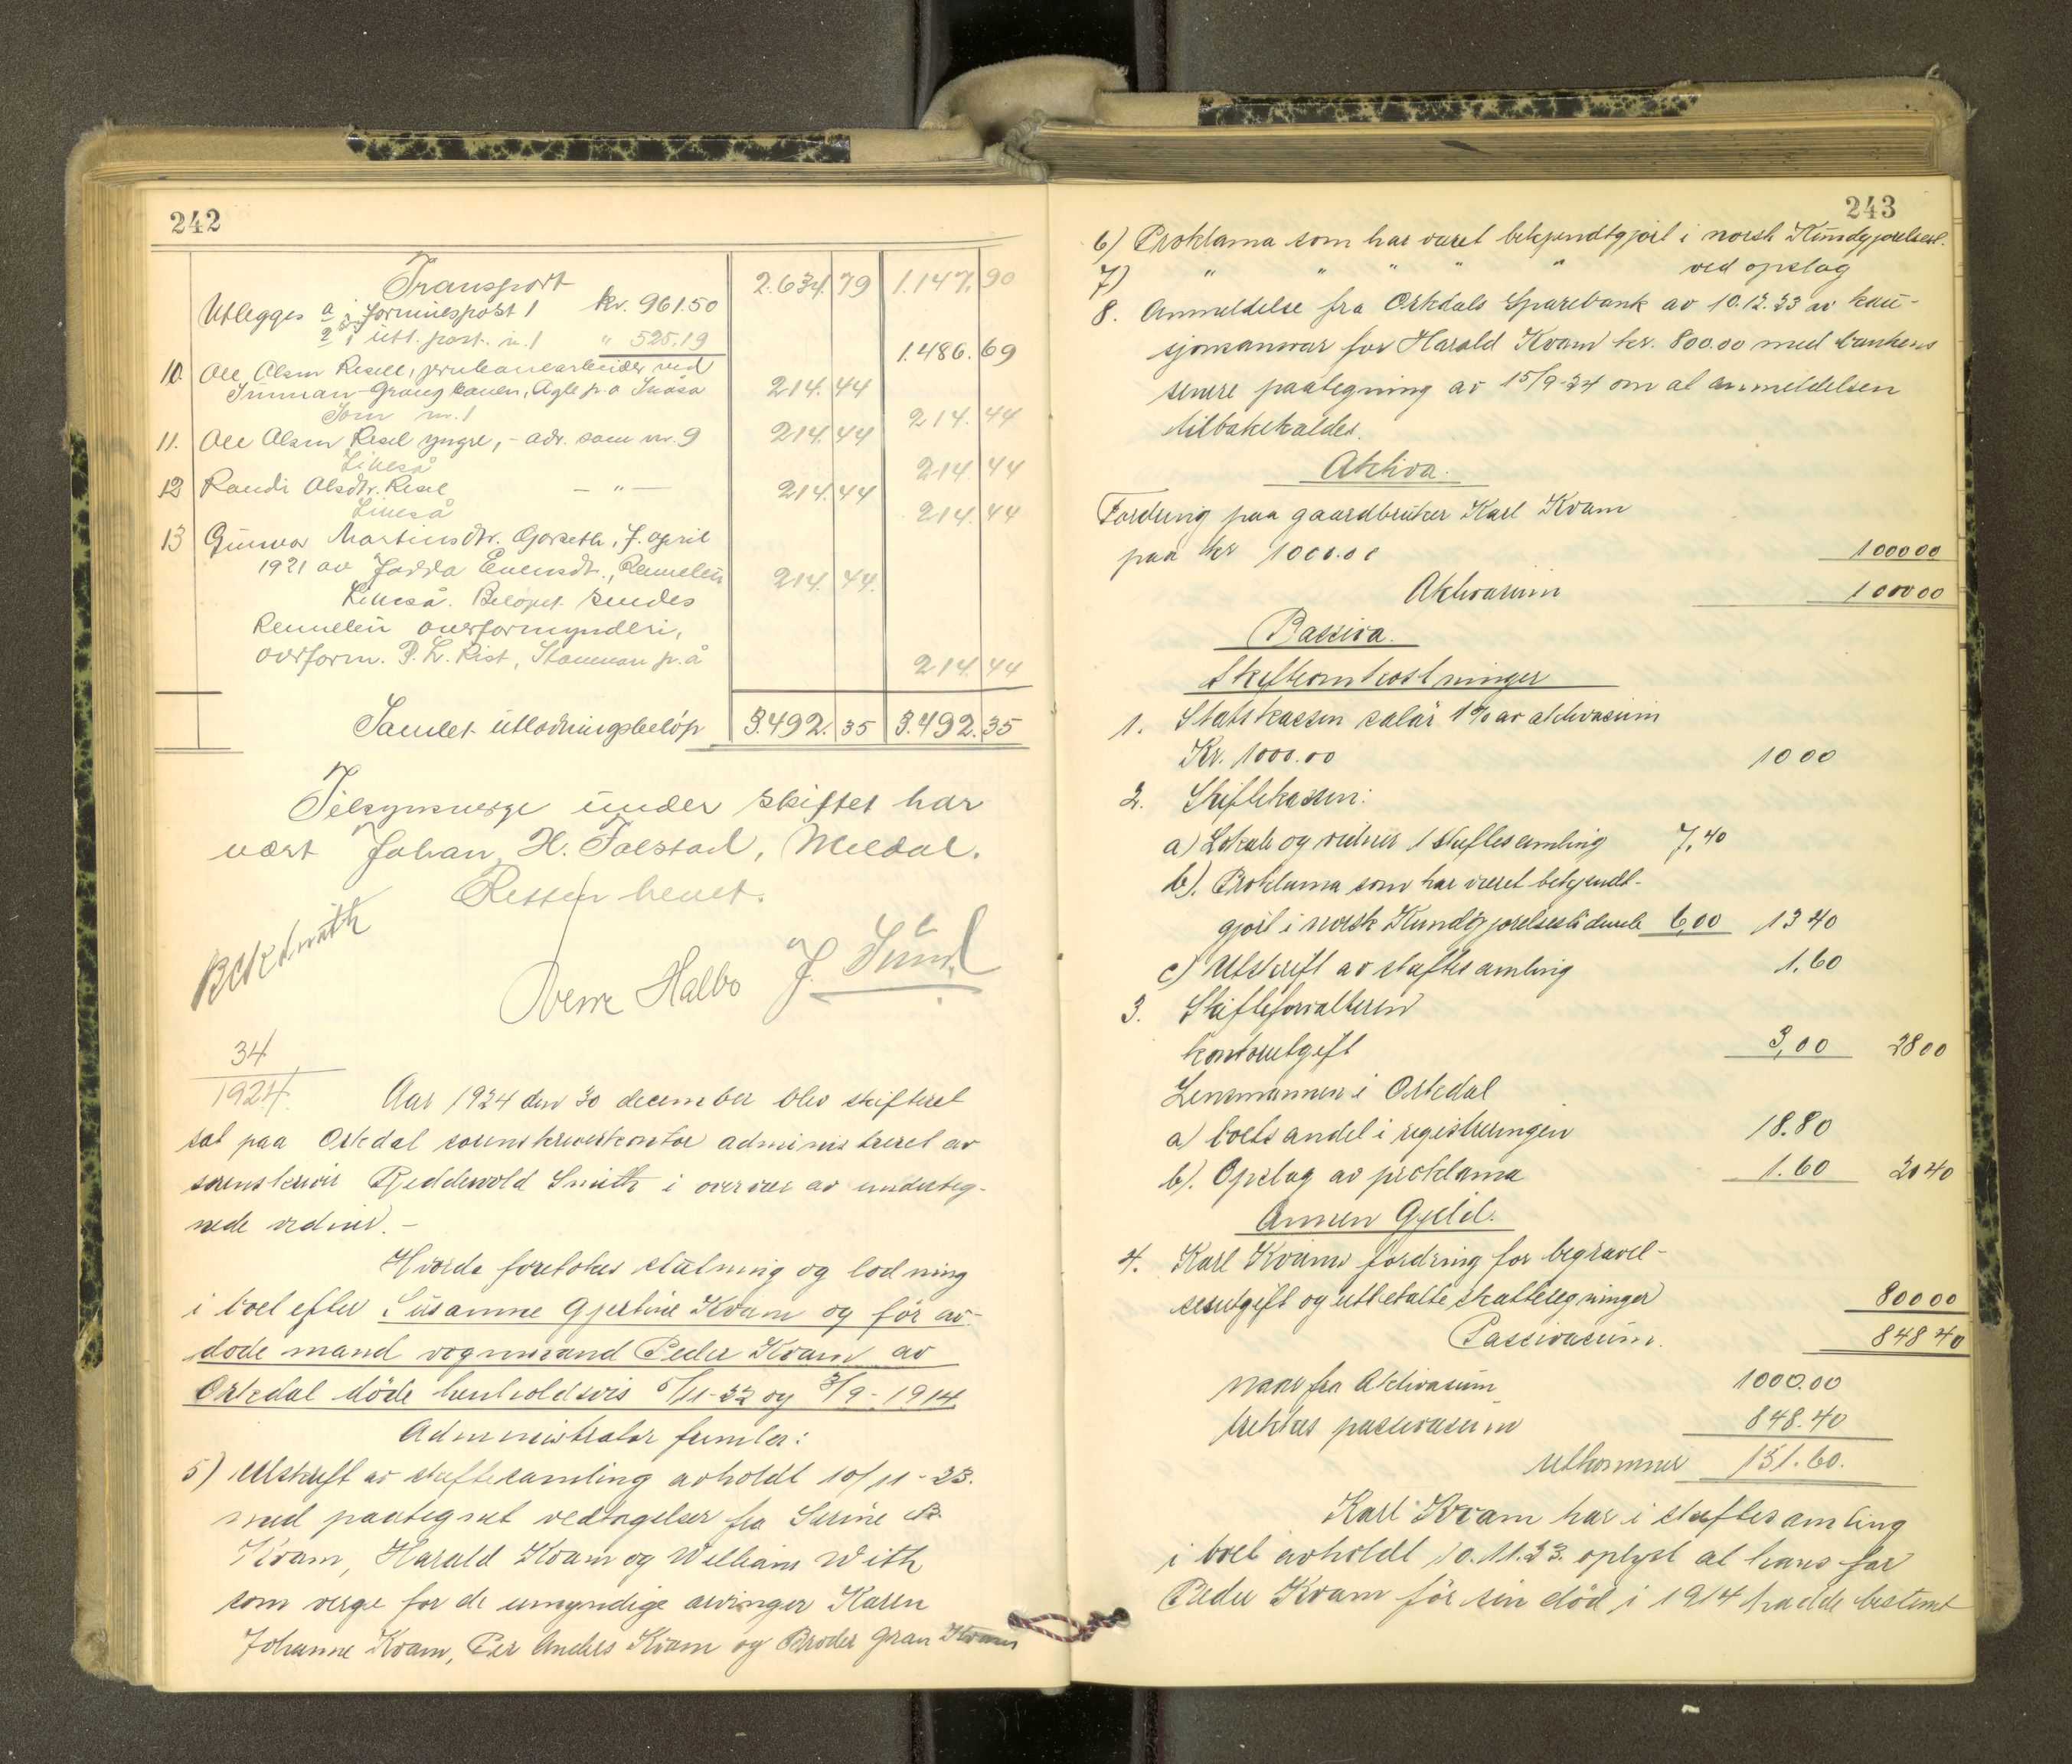 242
Transport 2.634.79 1.147.90
Utlegges a i formuespost 1 kr. 961.50
2 i utl. post. n. 1 " 525.19 1.486.69
10. Ole Olsen Resell, jernbanearbeider ved
Snunan-Grong banen, Agle p.a Snåsa 214.44
Som nr. 1 214.44
11. Ole Olsen Resel yngre, - adr. som nr. 9 214.44
Likeså 214.44
12 Randi Olsdtr. Resel — " — 214.44
Likeså 214.44
13 Gunvor Martinsdtr. Garseth, f. april
1921 av Jadda Evensdt., Rennebu 214.44.
Likeså. Beløpet sendes
Rennebu overformynderi,
overform. P. L. Rist, Stamnan p.å 214.44
Samlet utlodningsbeløp 3.492.35 3.492.35
Tilsynsverge under skiftet har
vært Johan H. Folstad, Meldal.
Retten hevet.
Sverre Halbo J. Sund
34
1924.
Aar 1934 den 30 december blev skifteret
sat paa Orkdal sorenskriverkontor administreret av
sorenskriver Smith i overvær av underteg-
nede vidner. -
Hvorda foretokes slutning og lodning
i boet efter Susanne Gjertine Kvam og før av-
døde mand vognmand Peder Kvam av
Orkdal døde henholdsvis 5/11-32 og 3/9-1914.
Administrator fremla:
5) Utskrift av skiftesamling avholdt 10/11-33.
med paategnet vedtagelser fra Serine B.
Kvam, Harald Kvam og William With
som verge for de umyndige arvinger Karen
Johanne Kvam, Per Anders Kvam og Broder Gran Kvam
243
6) Proklama som har været bekjendtgjort i norsk Kundgjørelsest.
7) " " " " " ved opslag
8. Anmeldelse fra Orkdals Sparebank av 10.12.33 av kau-
sjonsansvar for Harald Kvam kr. 800.00 med bankens
senere paategning av 15/9-34 om at anmeldelsen
tilbakekaldes.
Aktiva.
Fordring paa gaardbruker Karl Kvam
paa kr 1000.00 1000 00
Aktivasum 1000 00
Passiva.
Skifteomkostninger
1. Statskassen salær 1% av aktivasum
Kr. 1000.00 10 00
2. Skiftekassen:
a) Lokale og vidner 1 skiftesamling 7,40
b). Proklama som har været bekjendt-
gjort i norsk Kundgjørelsestidende 6,00 13 40
c) Utskrift av skiftesamling 1.60
3. Skifteforvalteren
kontorutgift 3,00 28 00
Lensmannen i Orkdal
a) boets andel i registreringen 18.80
b). Opslag av proklama 1.60 20 40
Annen Gjeld.
4. Karl Kvams fordring for begravel-
sesutgift og utbetalte skatteligninger 800 00
Passivasum. 848 40
naar fra Aktivasum 1000.00
trekkes passivasum 848.40
utkommer 151.60.
Karl Kvam har i skiftesamling
i boet avholdt 10.11.33. oplyst at hans far
Peder Kvam før sin død i 1914 hadde bestemt